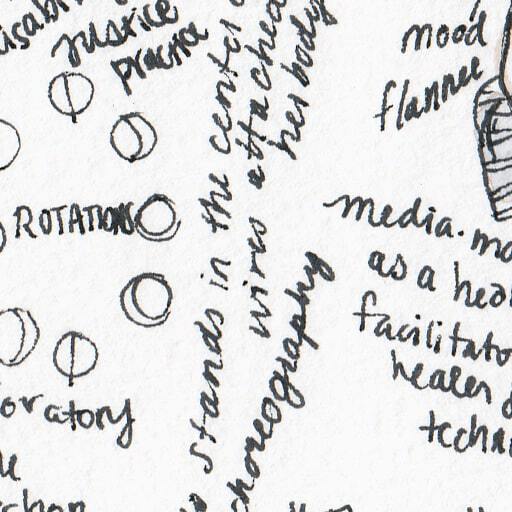 justice
practice
ROTATIONS
oratory
stands in the cent
wires attached
her body
choreography
mood
flannel
media.
as a
facilitato
healer
techn